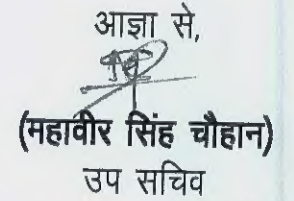 आज्ञा से,
(महावीर सिंह चौहान)
उप सचिव